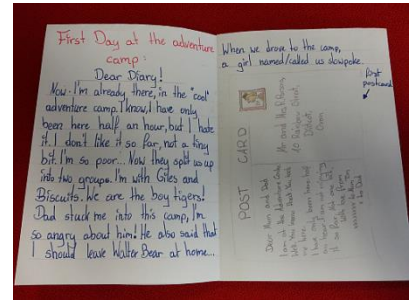 First Day at the adventure
camp:
Dear Diary!
Now I'm already there, in the "cool"
adventure camp. I know, I have only
been here half an hour, but I hate
it. I don't like it so far, not a tiny
bit. I'm so poor... Now they split us up
into two groups. I'm with Giles and
Biscuits. We are the boy tigers!
Dad stuck me into this camp, I'm
so angry about him! He also said that
I should leave Walter Bear at home...
When we drove to the camp,
a girl named/called us slowpoke.
postcard
POST CARD
Mr and Mrs
Dear Mum and Dad
I am at the Adventure Centre
I have only been here half